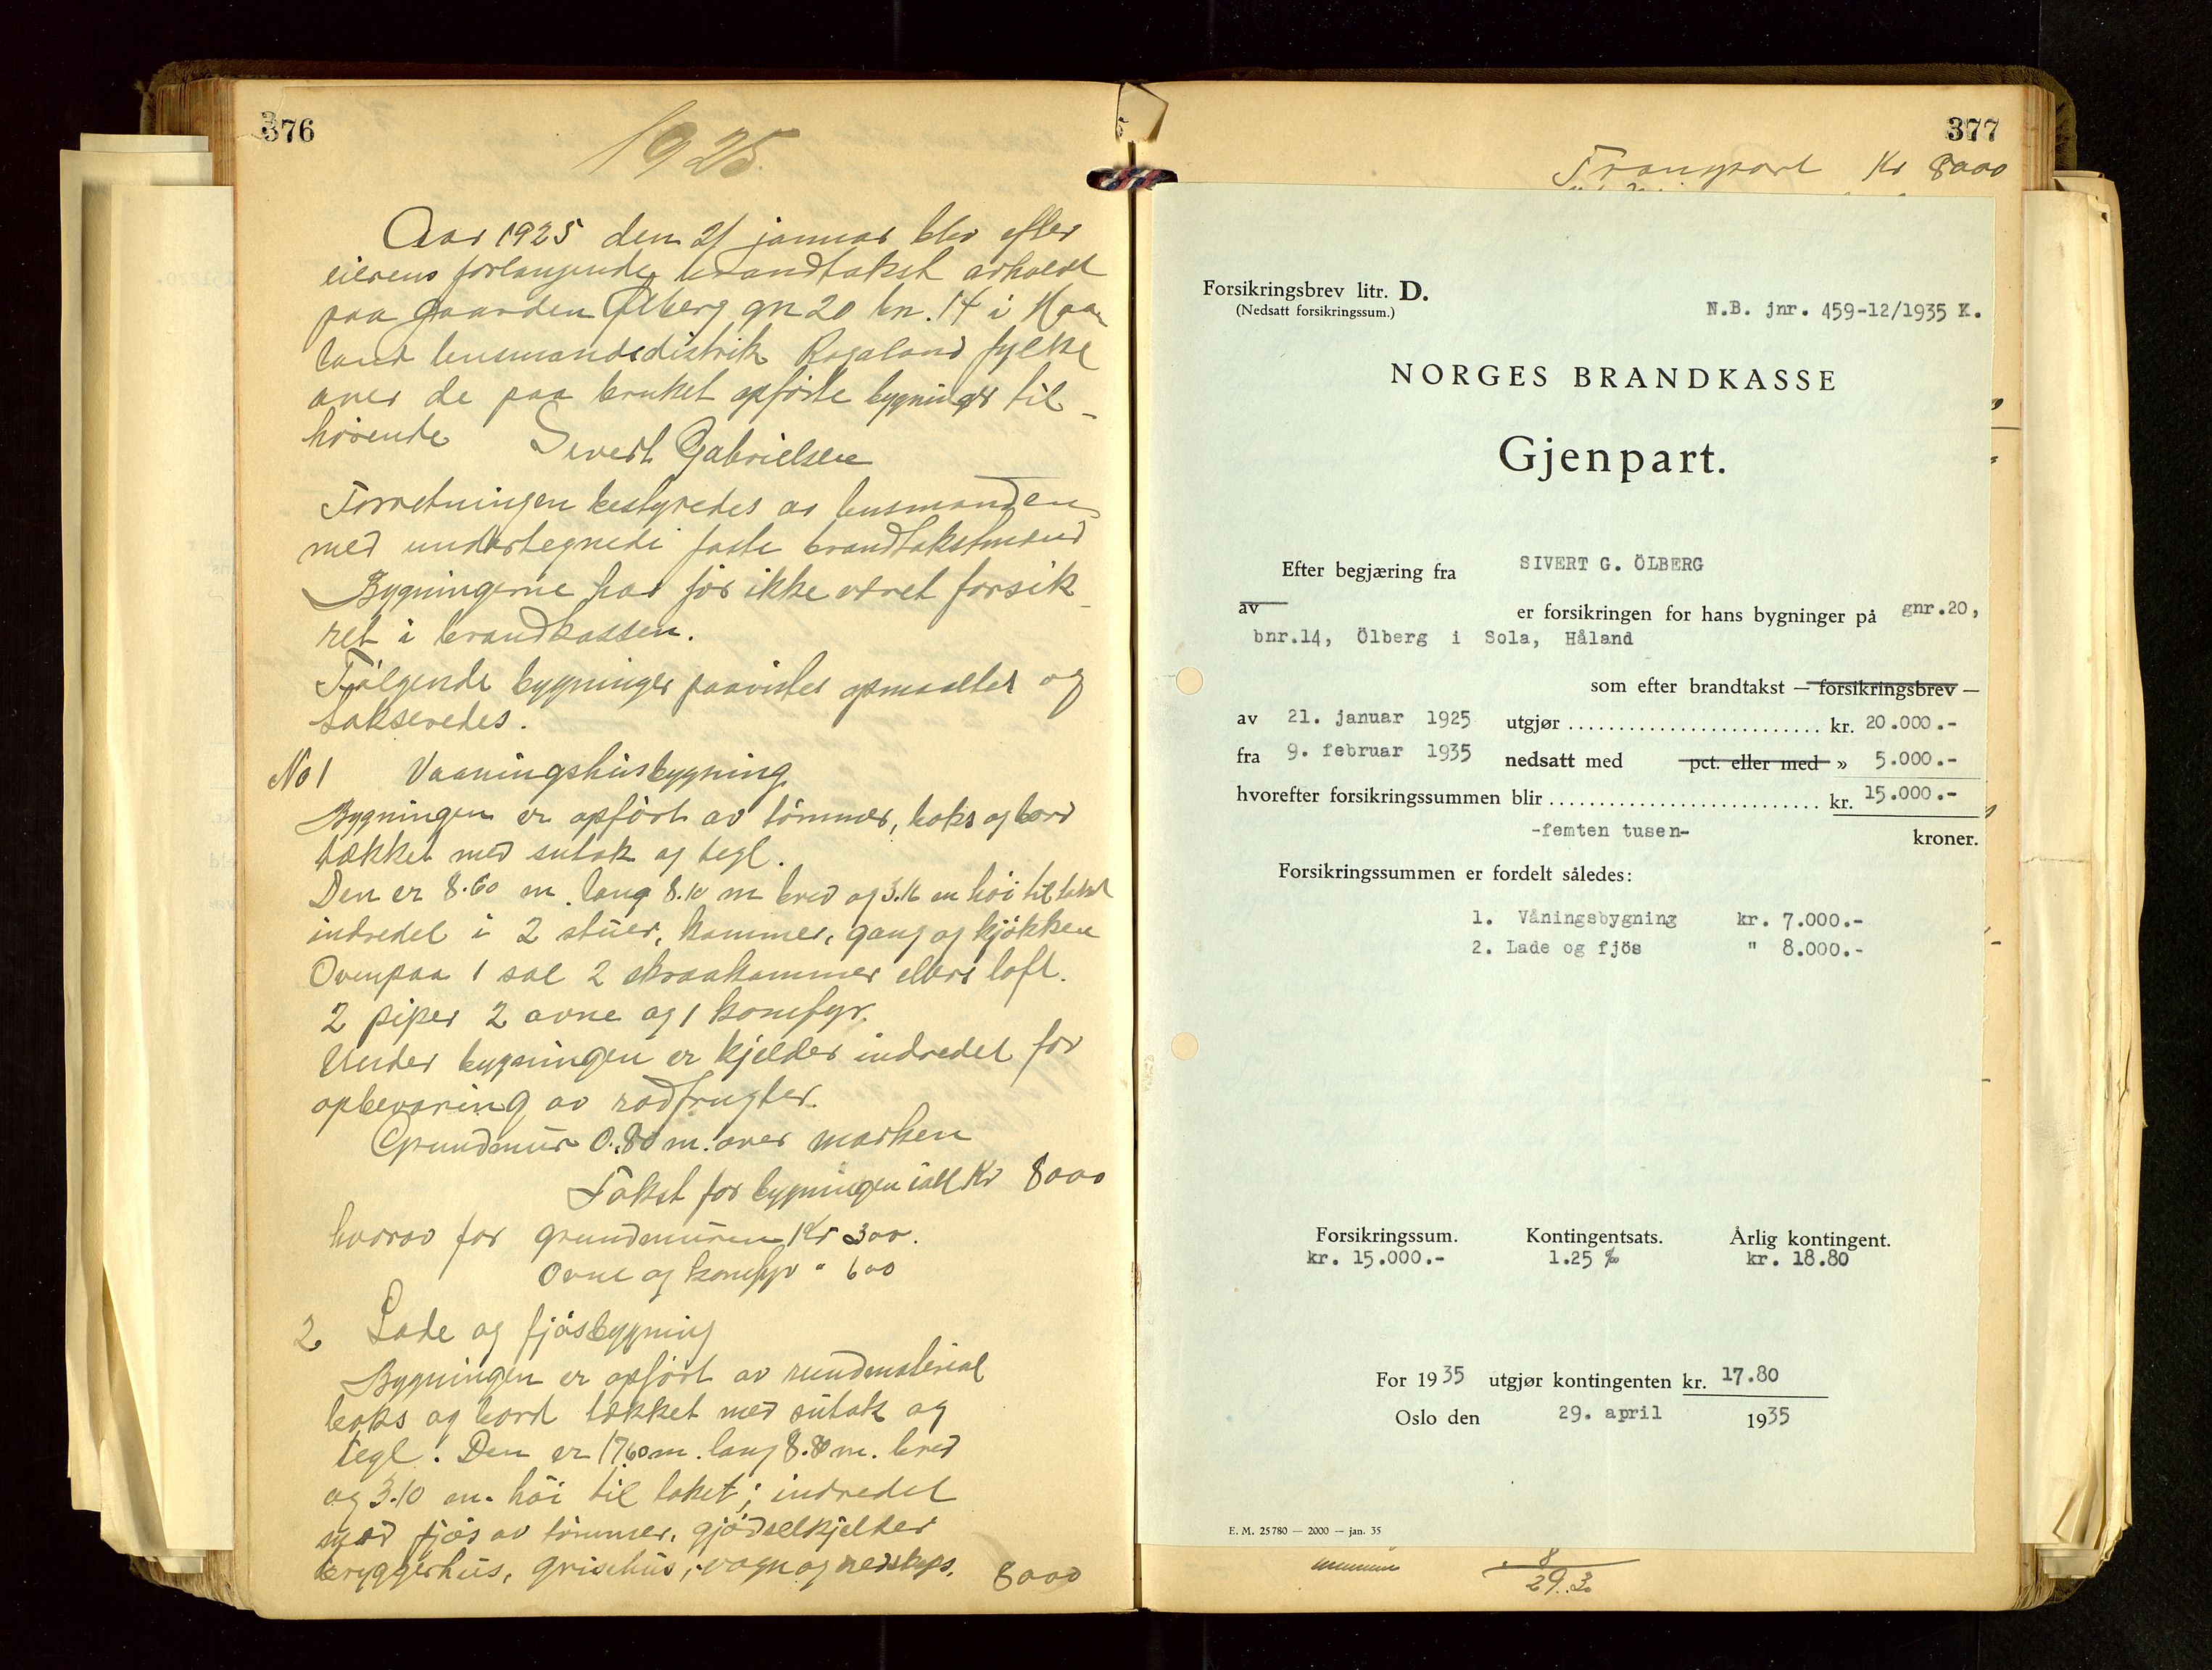 376
1925.
Aar 1925 den 21 januar blev efter
eierens forlangende brandtakst avholdt
paa gaarden Ølberg gn 20 bn. 14 i Haa-
land lensmandsdistrik Rogaland fylke
over de paa bruket opførte bygninger til-
hørende Sivert Gabrielsen
Forretningen bestyredes av lensmanden
med undertegnede faste brandtakstmænd
Bygningerne har før ikke været forsik-
ret i brandkassen.
Følgende bygninger paavistes opmaaltes og
takseredes.
No 1 Vaaningshusbygning
Bygningen er opført av tømmer, boks og bord
tækket med sutak og tegl.
Den er 8.60 m. lang 8.10 m bred og 3.16 m høi til taket
indredet i 2 stuer, kammer, gang og kjøkken
Ovenpaa 1 sal 2 skraakammer ellers loft.
2 piper 2 ovne og 1 komfyr.
Under bygningen er kjelder indredet for
opbevaring av rodfrugter.
Grundmur 0.80 m. over marken
Takst for bygningen ialt Kr 8000
hvorav for grundmuren Kr 300.
Ovne og komfyr " 600
2 Lade og fjøsbygning
Bygningen er opført av rundmaterial
boks og bord tækket med sutak og
tegl. Den er 17.60 m. lang 8.80 m. bred
og 3.10 m. høi til taket; indredet
med fjøs av tømmer, gjødselkjelder
bryggerhus, grisehus, vogn og redskaps. 8000
377
Transport Kr 8000
Forsikringsbrev litr. D.
(Nedsatt forsikringssum.)
N.B. jnr. 459-12/1935 K.
NORGES BRANDKASSE
Gjenpart.
Efter begjæring fra SIVERT G. ÖLBERG
av er forsikringen for hans bygninger på gnr.20,
bnr.14, Ölberg i Sola, Håland
som efter brandtakst — forsikringsbrev —
av 21. januar 1925 utgjør ........................ kr. 20.000.-
fra 9. februar 1935 nedsatt med pct. eller med » 5.000.-
hvorefter forsikringssummen blir ........................ kr. 15.000.-
-femten tusen- kroner.
Forsikringssummen er fordelt således:
1. Våningsbygning kr. 7.000.-
2. Lade og fjös " 8.000.-
Forsikringssum. Kontingentsats. Årlig kontingent.
kr. 15.000.- 1.25 ‰ kr. 18.80
For 1935 utgjør kontingenten kr. 17.80
Oslo den 29. april 1935
E. M. 25780 — 2000 — jan. 35
8
29.3